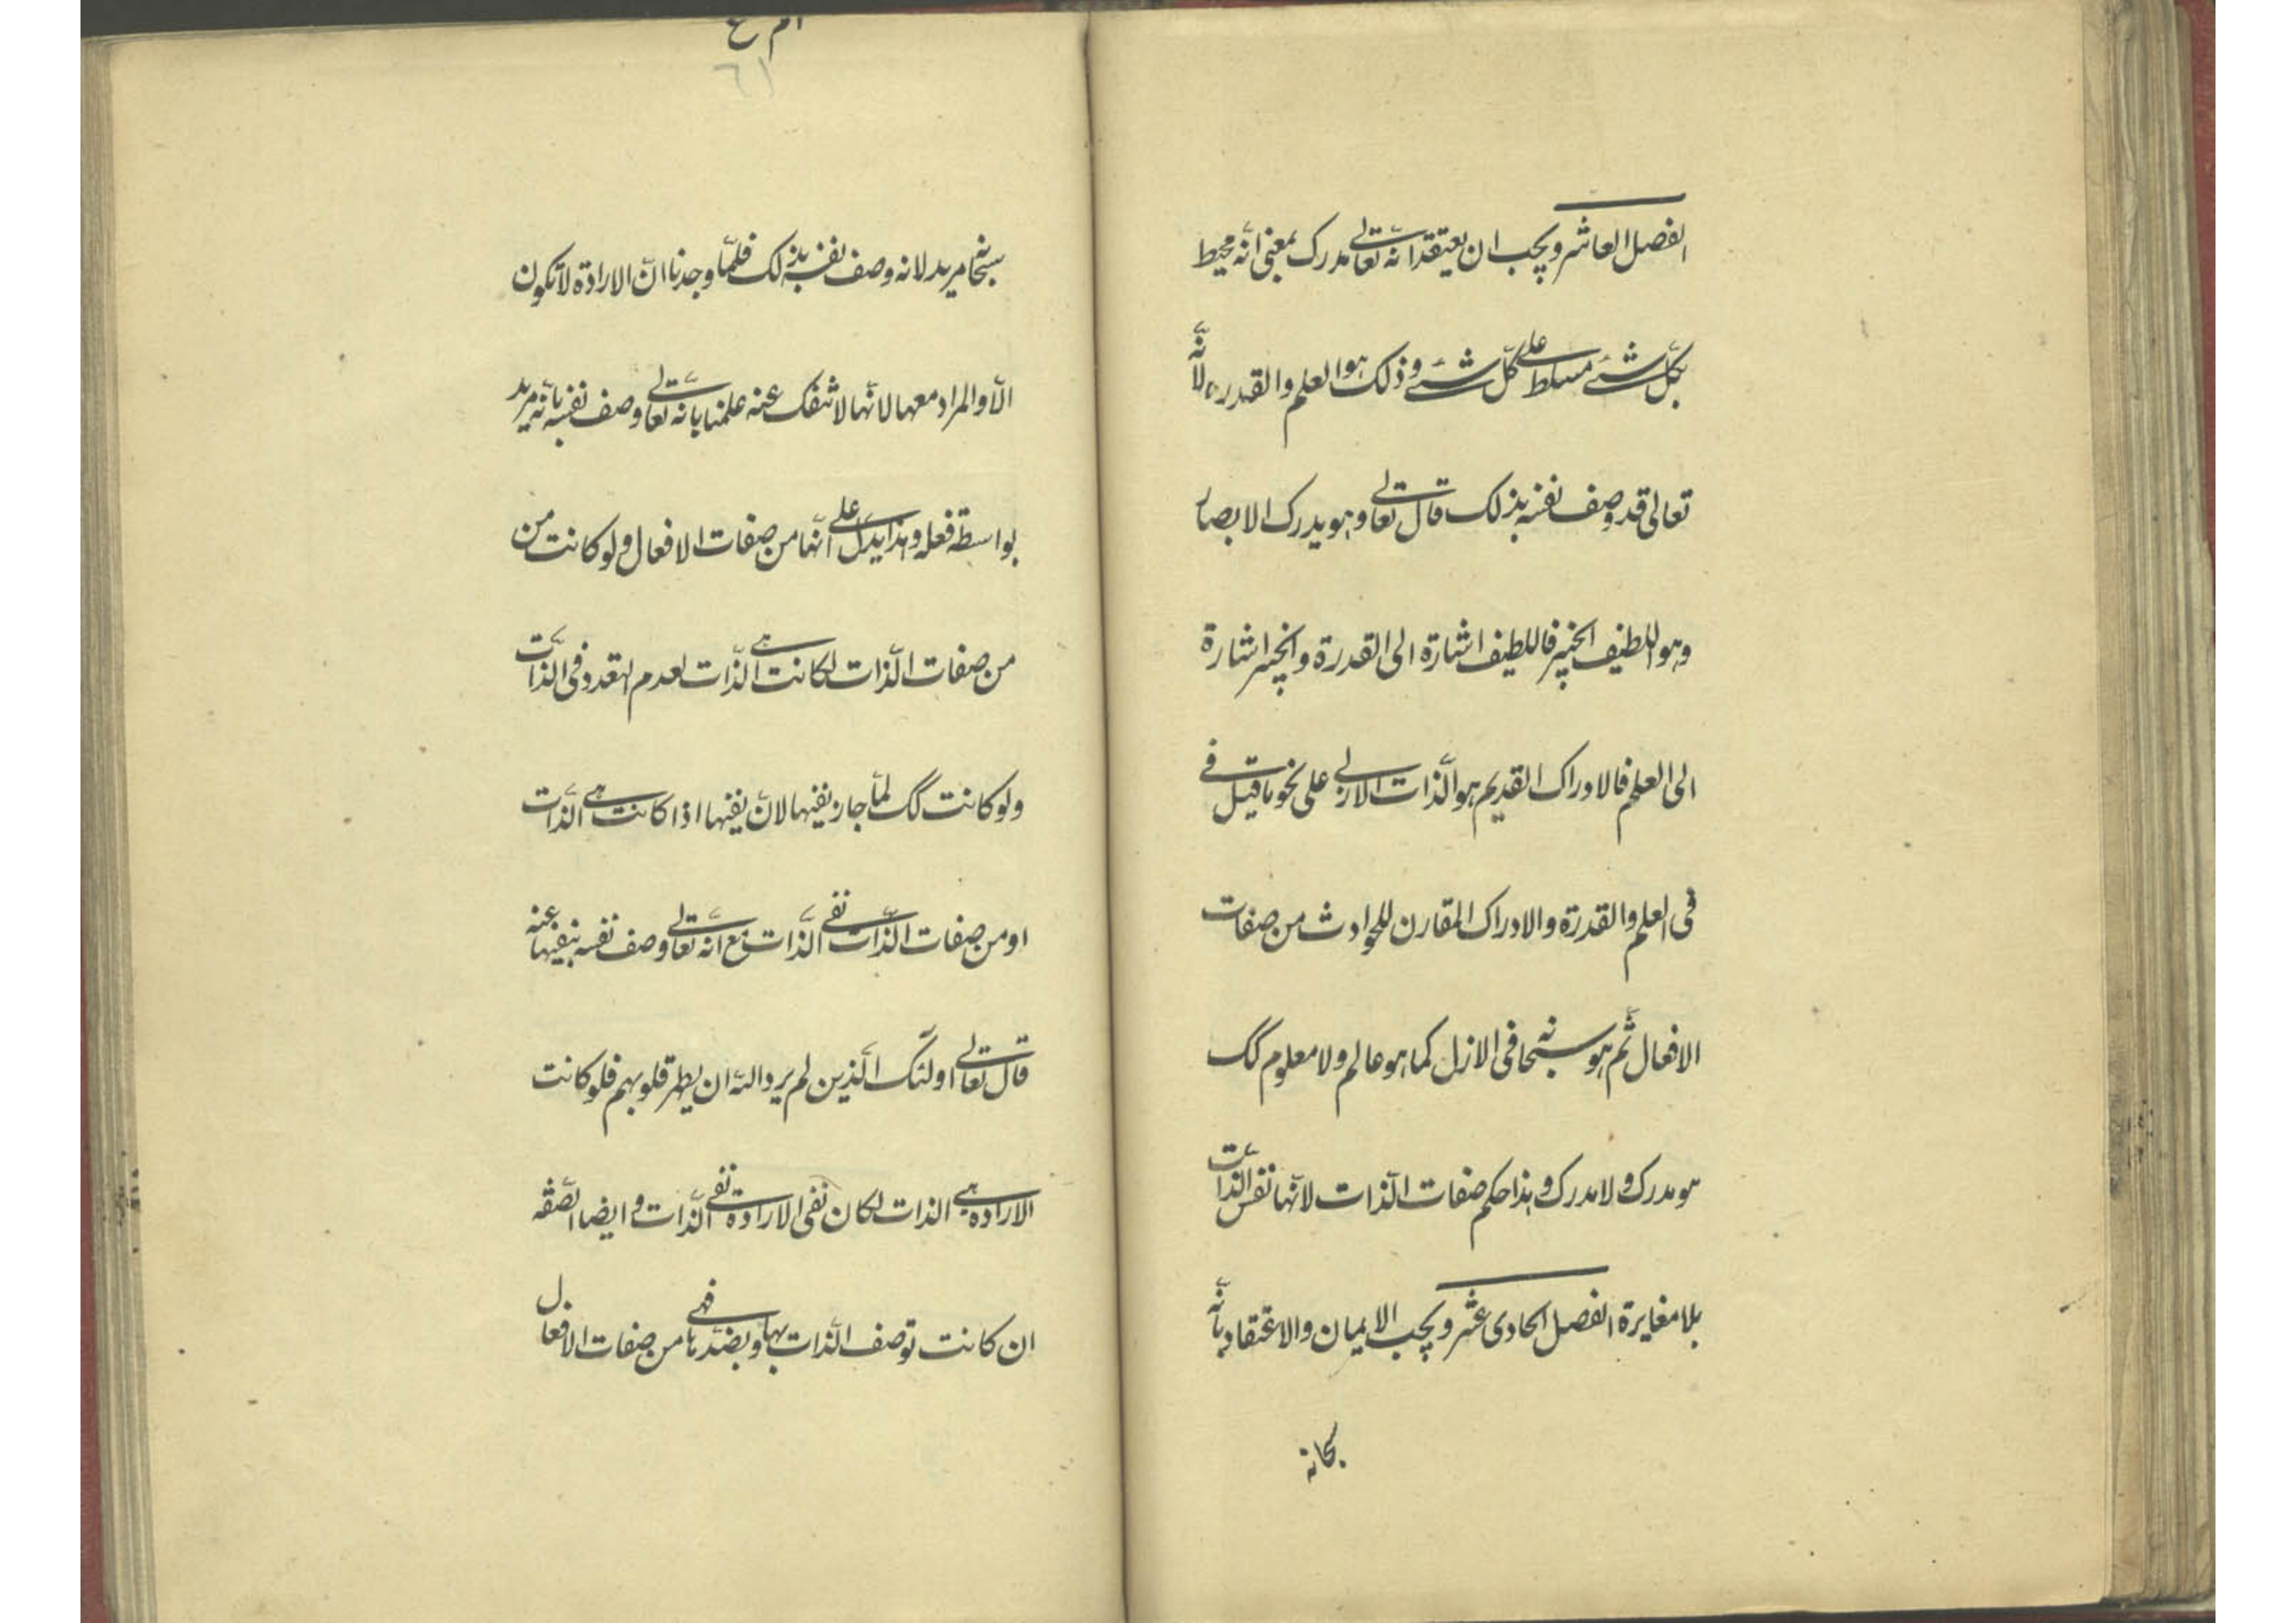 الفصل العاشر ويجب ان يعتقد انّه تعالى مدرك بمعنى انّه محيط
بكلّ شئ مسلّط على كلّ شئ وذلك هو العلم والقدرة لانّه
تعالى قد وصف نفسه بذلك قال تعالى وهو يدرك الابصار
وهو اللطيف الخبير فاللطيف اشارة الى القدرة والخبير اشارة
الى العلم فالادراك القديم هو الذّات الازلى على نحو ما قيل فى
فى العلم والقدرة والادراك المقارن للحوادث من صفات
الافعال ثمّ هو سبحانه فى الازل كما هو عالم ولا معلوم كك
هو مدرك ولا مدرك وهذا حكم صفات الذّات لانّها نفس الذّات
بلا مغايرة الفصل الحادى عشر ويجب الايمان والاعتقاد بانّه
سبحانه
٦١
سبحانه مريد لانه وصف نفسه بذلك فلمّا وجدنا انّ الارادة لا تكون
الّا والمراد معها لانّها لا تنفك عنه علمنا بانّه تعالى وصف نفسه بانّه مريد
بواسطة فعله وهذا يدلّ على انّها من صفات الافعال ولو كانت من
من صفات الذّات لكانت هى الذّات لعدم التعدد فى الذّات
ولو كانت كك لمّا جاز نفيها لانّ نفيها اذا كانت هى الذّات
او من صفات الذّات نفى الذّات مع انّه تعالى وصف نفسه بنفيها عنه
قال تعالى اولئك الّذين لم يرد اللّه ان يطهر قلوبهم فلو كانت
الارادة هى الذات لكان نفى الارادة نفى الذّات وايضا الصّفة
ان كانت توصف الذّات بها وبضدّها فهى من صفات الافعال